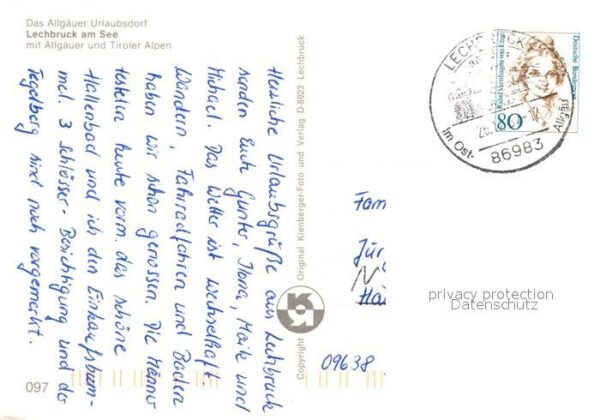 Das Allgäuer Urlaubsdorf
Lechbruck am See
mit Allgäuer und Tiroler Alpen
Herzliche Urlaubsgrüße aus Lechbruck
senden Euch Gunter, Ilona, Maik und
Michael. Das Wetter ist wechselhaft.
Wandern, Fahrradfahren und Baden
haben wir schon genossen. Die Männer
testeten heute vorm. das schöne
Hallenbad und ich den Einkaufsbum-
mel. 3 Schlösser-Besichtigung und der
Tegelberg sind noch vorgemerkt.
097
Copyright
Original Kienberger-Foto und Verlag D-8923 Lechbruck
Deutsche Bundespost
80
LECHBRUCK
86983
Im Ost-
Allgäu
Fam
Jür
Ha
09638
privacy protection
Datenschutz